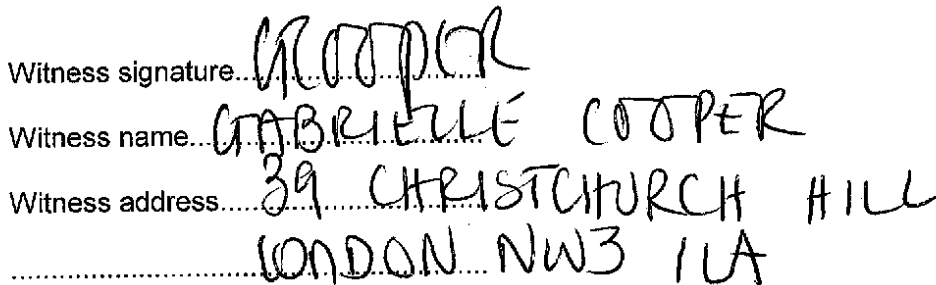 Witness signature....GCOOPER
Witness name....GABRIELLE COOPER
Witness address....39 CHRISTCHURCH HILL
....LONDON NW3 1LA